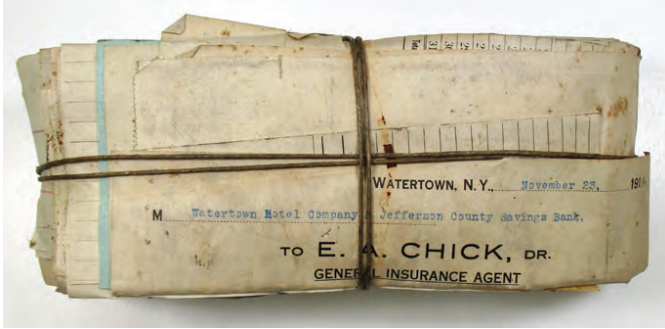 WATERTOWN, N. Y., November 23, 1906
M Watertown Hotel Company & Jefferson County Savings Bank.
TO E. A. CHICK, DR.
GENERAL INSURANCE AGENT